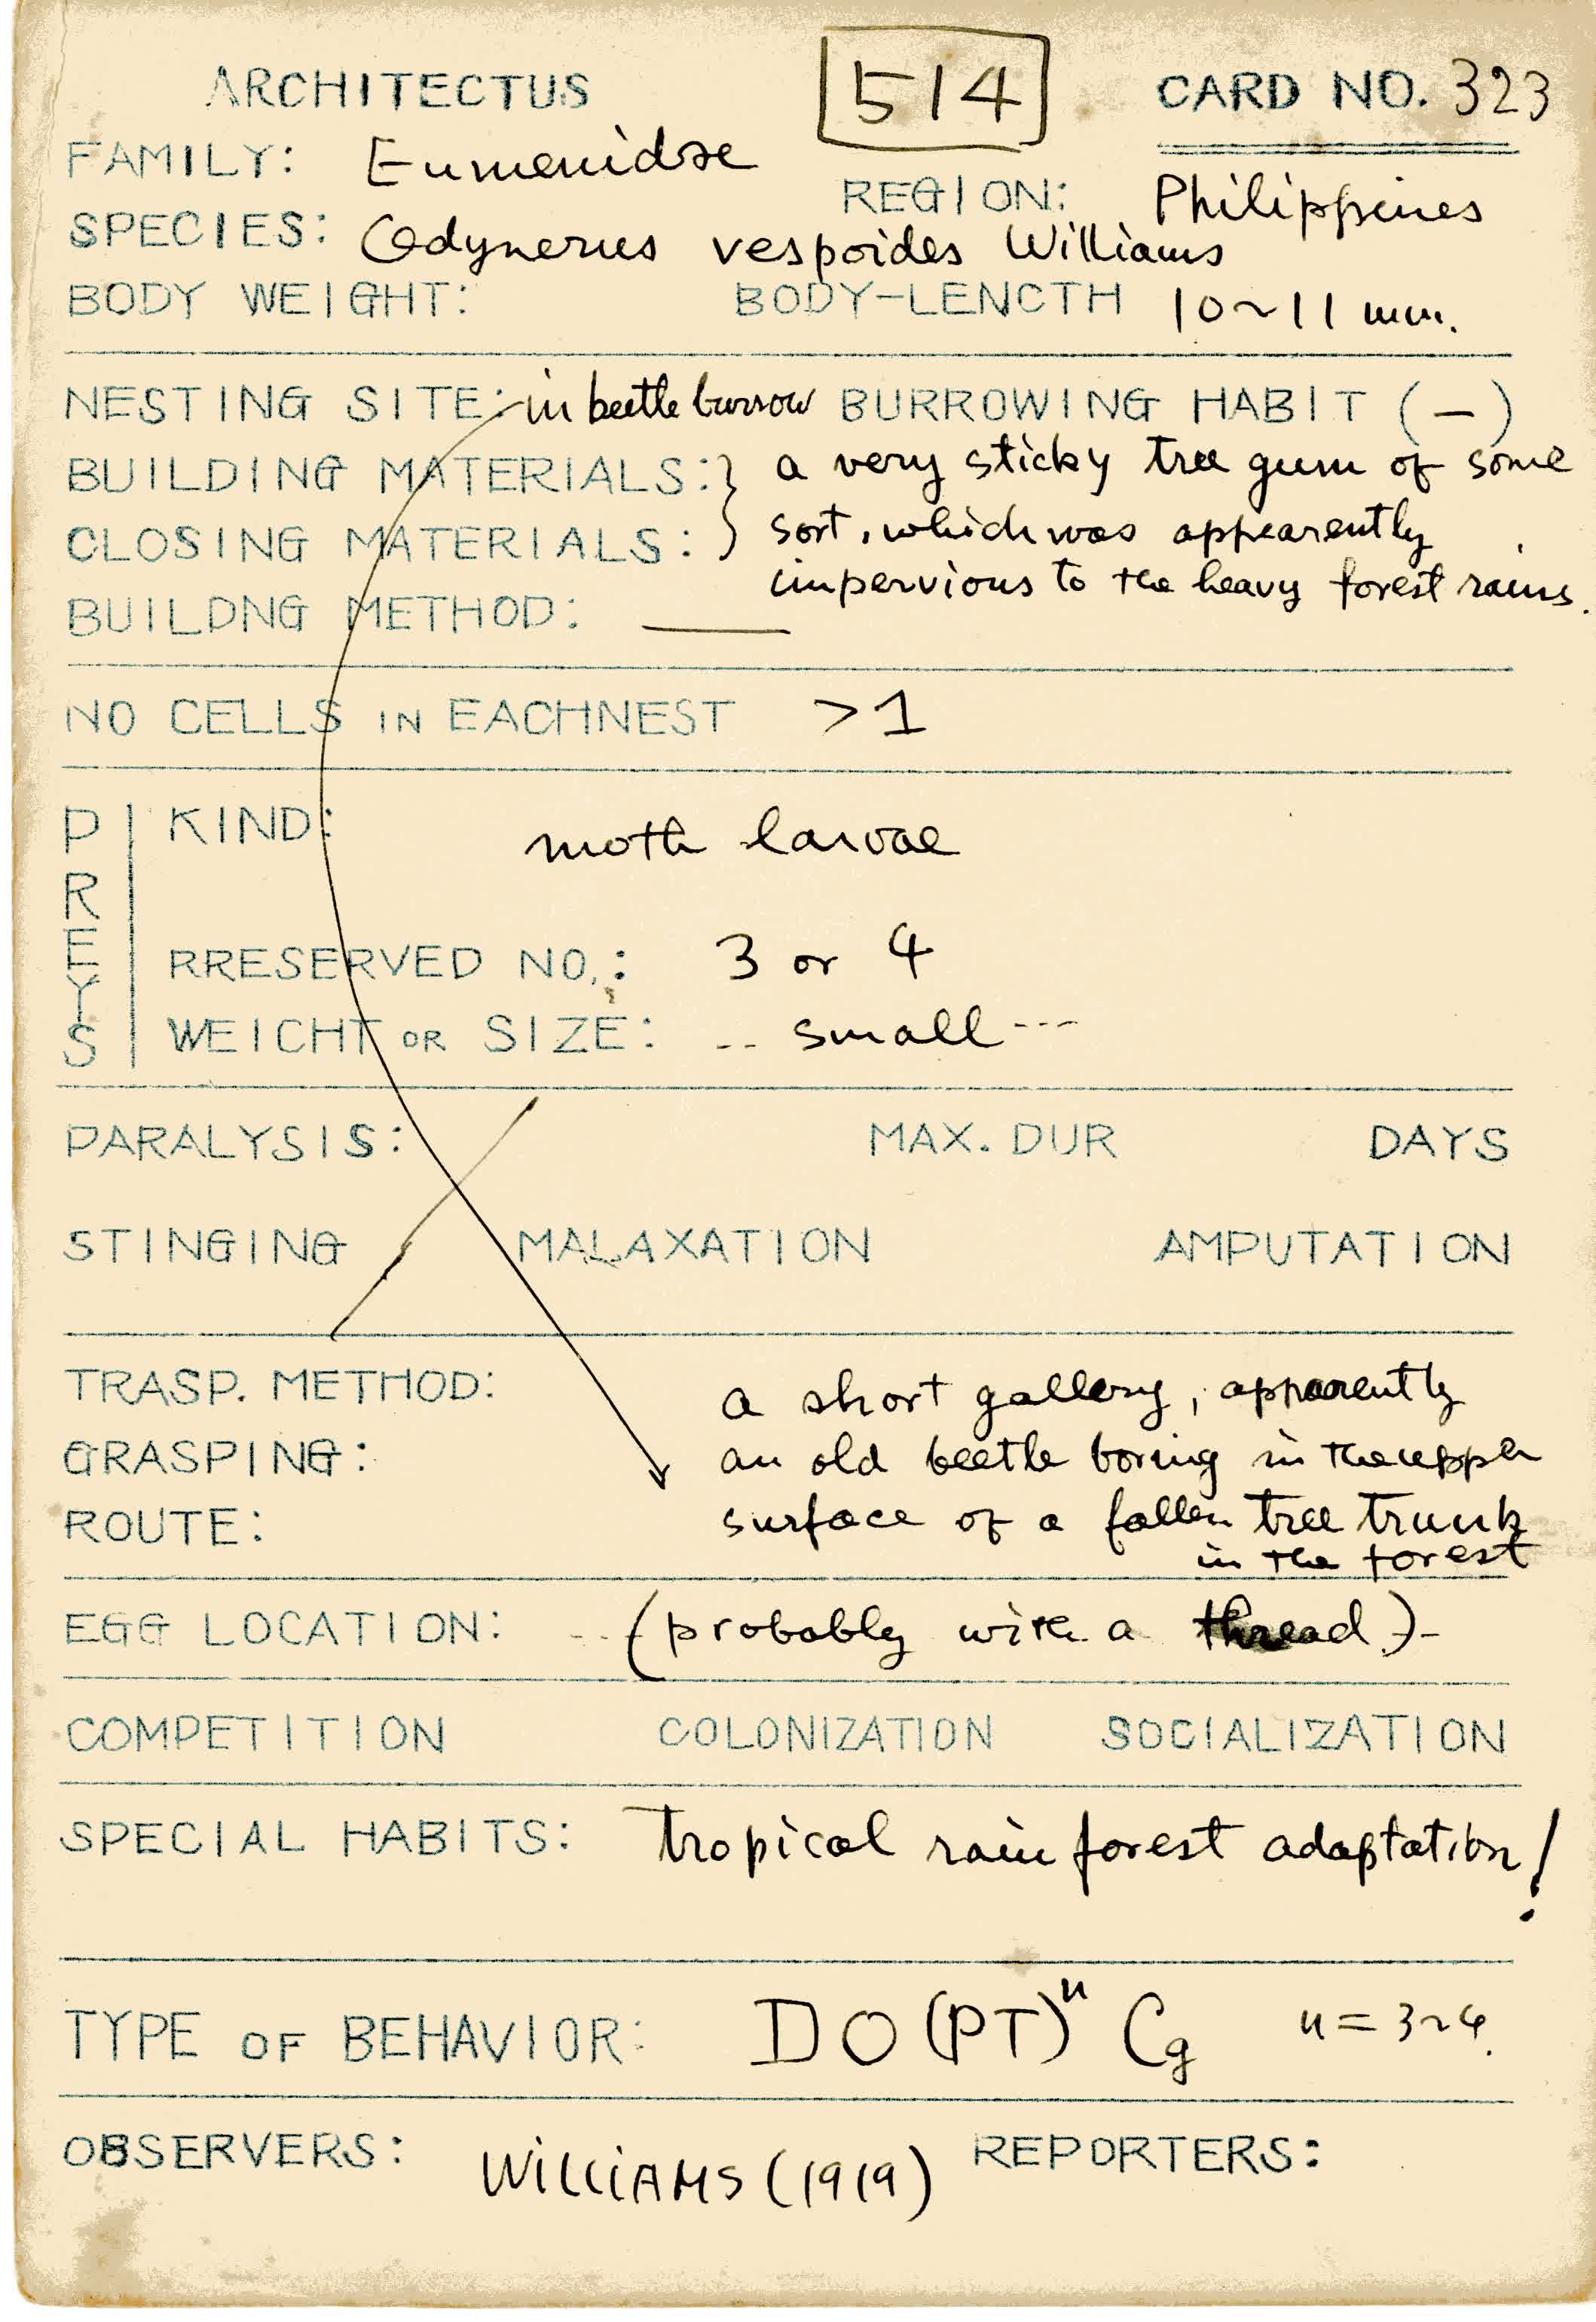 ARCHITECTUS 514 CARD NO. 323
FAMILY: Eumenidae
REGION: Philippines
SPECIES: Odynerus vespoides Williams
BODY WEIGHT: BODY-LENCTH 10~11 mm.
NESTING SITE: in beetle burrow BURROWING HABIT (-)
BUILDING MATERIALS: } a very sticky tree gum of some
CLOSING MATERIALS: } sort, which was appearently
impervious to the heavy forest rains.
BUILDNG METHOD: ——
NO CELLS IN EACHNEST >1
PREYS
KIND: moth larvae
RRESERVED NO.: 3 or 4
WEICHT OR SIZE: -- small ---
PARALYSIS: MAX. DUR DAYS
STINGING MALAXATION AMPUTATION
TRASP. METHOD: a short gallery, apparently
GRASPING: an old beetle boring in the upper
ROUTE: surface of a fallen tree trunk
in the forest
EGG LOCATION: --(probably with a thread.)-
COMPETITION COLONIZATION SOCIALIZATION
SPECIAL HABITS: tropical rain forest adaptation!
TYPE OF BEHAVIOR: DO(PT)ⁿ Cg n=3~4.
OBSERVERS: WILLIAMS (1919) REPORTERS: